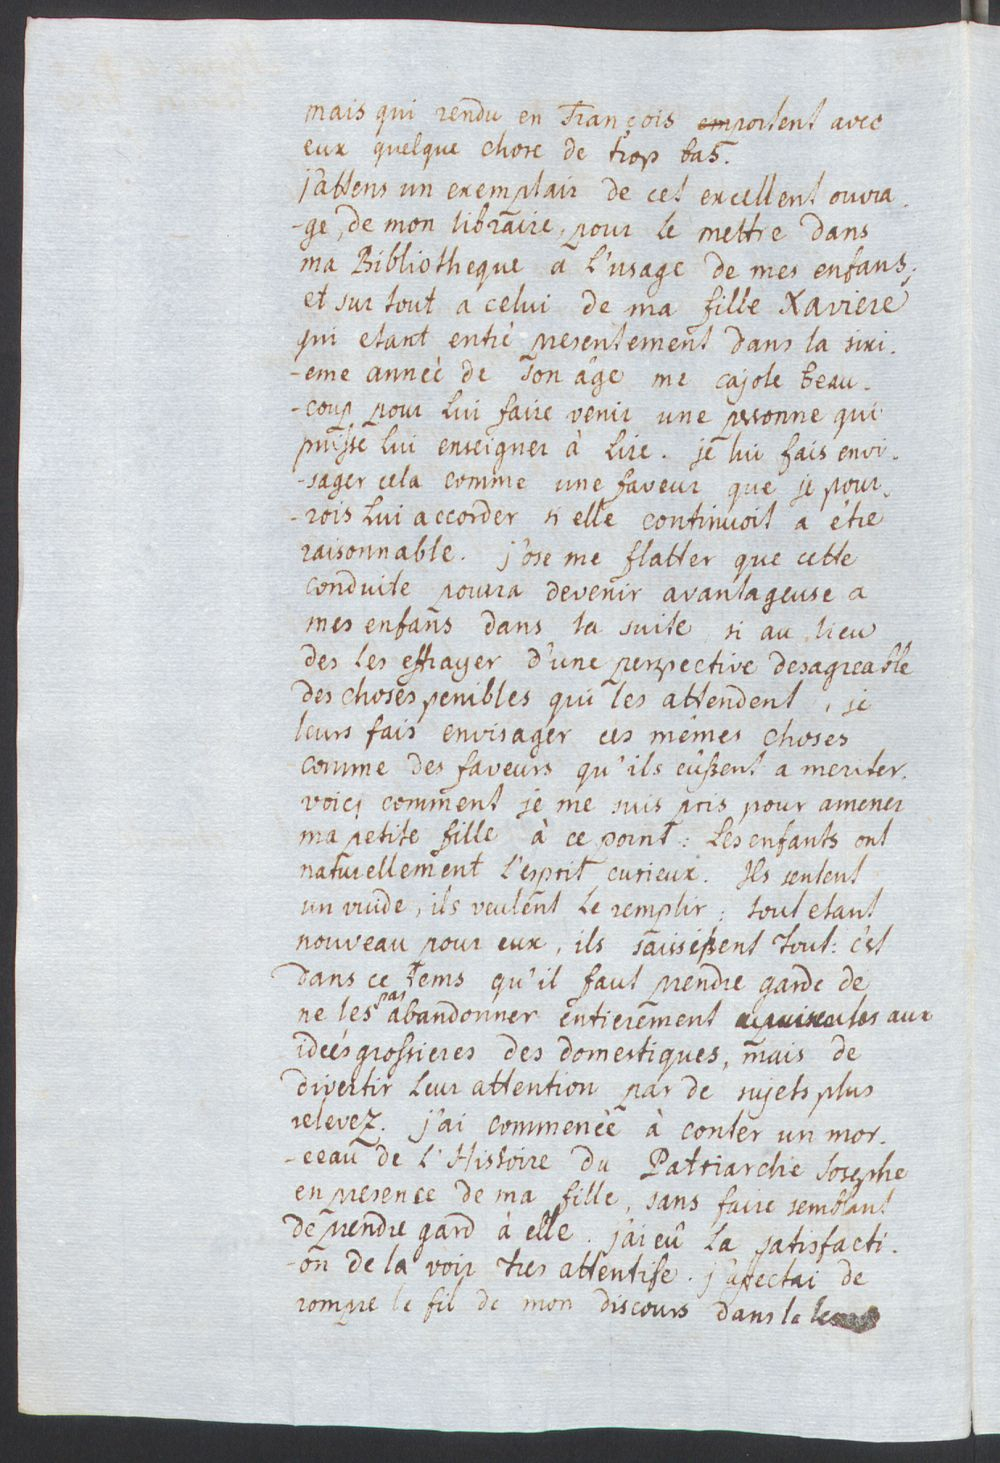 mais qui rendu en François portent avec
eux quelque chose de trop bas.
j'attens un exemplair de cet excellent ouvra
-ge, de mon libraire, pour le mettre dans
ma Bibliotheque a l'usage de mes enfans,
et sur tout a celui de ma fille Xaviere
qui etant entré presentement dans la sixi.
-eme anneè de son âge me cajole beau.
-coup pour lui faire venir une personne qui
puisse lui enseigner à lire. je lui fais envi.
-sager cela comme une faveur que je pour.
-rois lui accorder si elle continuoit a étre
raisonnable. j'ose me flatter que cette
conduite pourra devenir avantageuse a
mes enfans dans la suite si au lieu
des les effrayer d'une perspective desagreable
des choses penibles qui les attendent, je
leurs fais envisager ces mémes choses
comme des faveurs qu'ils eûßent a meriter.
voici comment je me suis pris pour amener
ma petite fille à ce point: Les enfants ont
naturellement l'esprit curieux. Ils sentent
un vuide, ils veulent le remplir; tout etant
nouveau pour eux, ils saisißent tout: c'est
dans ce tems qu'il faut prendre garde de
ne les pas abandonner entierement aux
ideés grossieres des domestiques, mais de
divertir leur attention par de sujets plus
relevez. j'ai commencè à conter un mor.
-ceau de l'Histoire du Patriarche Josephe
en presence de ma fille, sans faire semblant
de prendre gard à elle. j'ai eû la satisfacti.
-on de la voir tres attentife. j'afectai de
rompre le fil de mon discours dans le tems